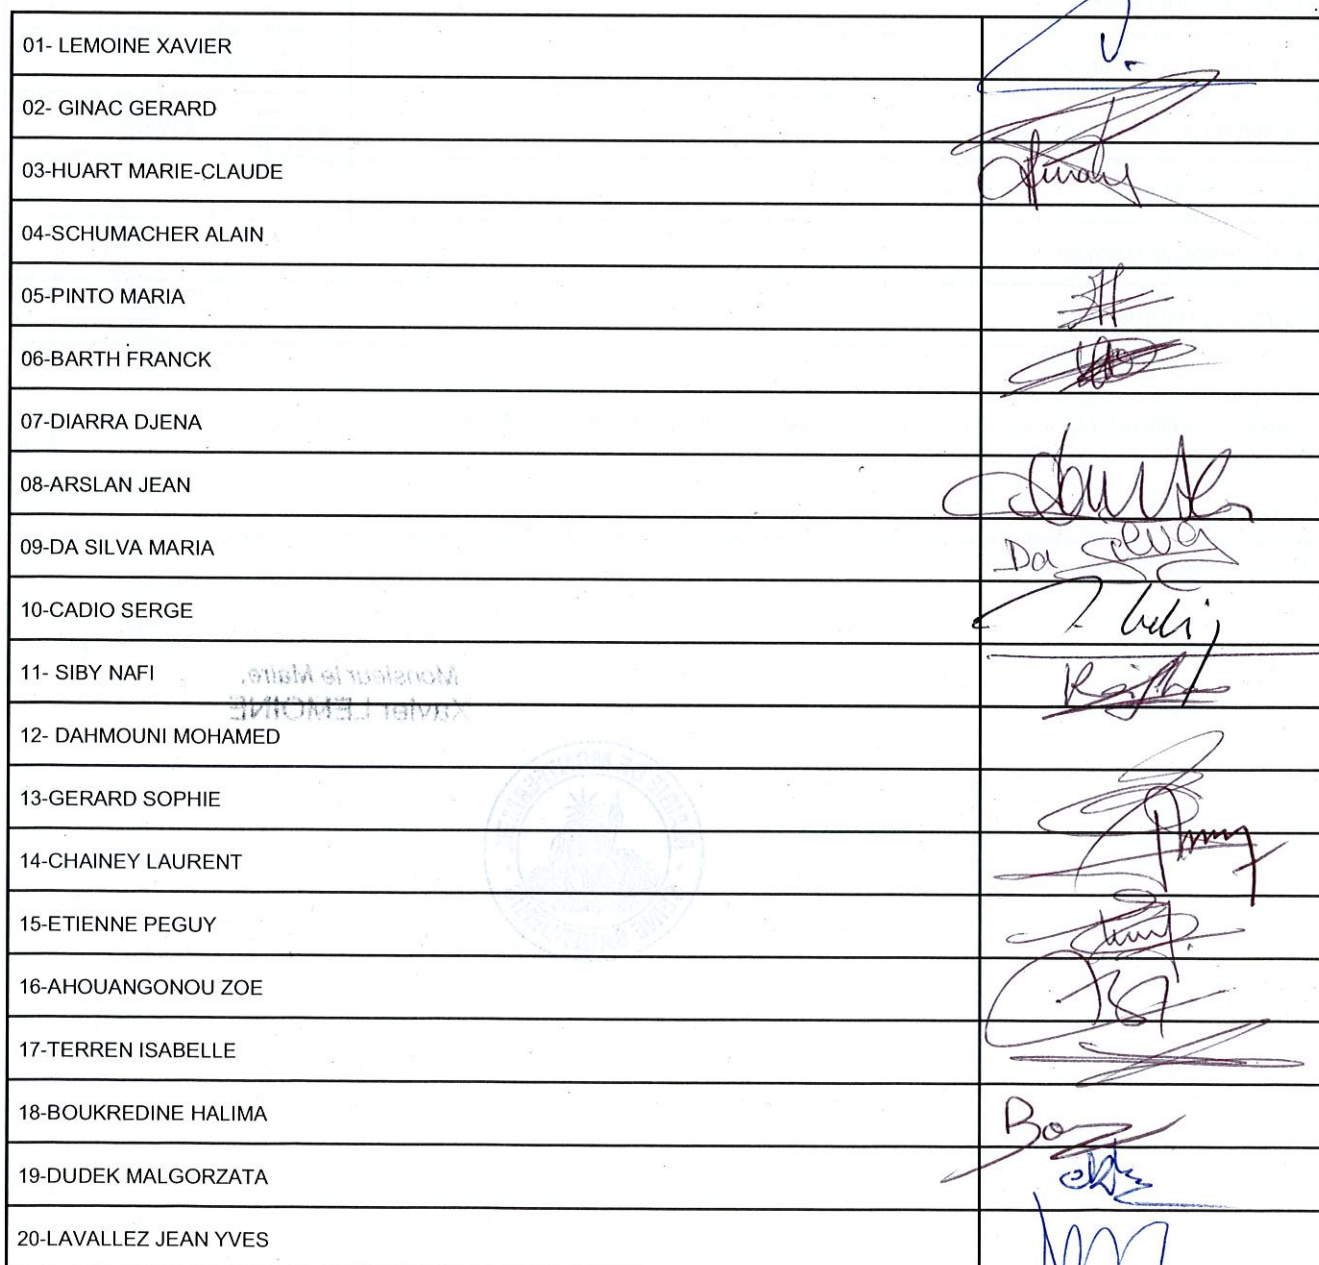 01- LEMOINE XAVIER
02- GINAC GERARD
03-HUART MARIE-CLAUDE
04-SCHUMACHER ALAIN
05-PINTO MARIA
06-BARTH FRANCK
07-DIARRA DJENA
08-ARSLAN JEAN
09-DA SILVA MARIA
Da Silva
10-CADIO SERGE
11- SIBY NAFI
Monsieur le Maire,
Xavier LEMOINE
12- DAHMOUNI MOHAMED
13-GERARD SOPHIE
14-CHAINEY LAURENT
15-ETIENNE PEGUY
16-AHOUANGONOU ZOE
17-TERREN ISABELLE
18-BOUKREDINE HALIMA
19-DUDEK MALGORZATA
20-LAVALLEZ JEAN YVES